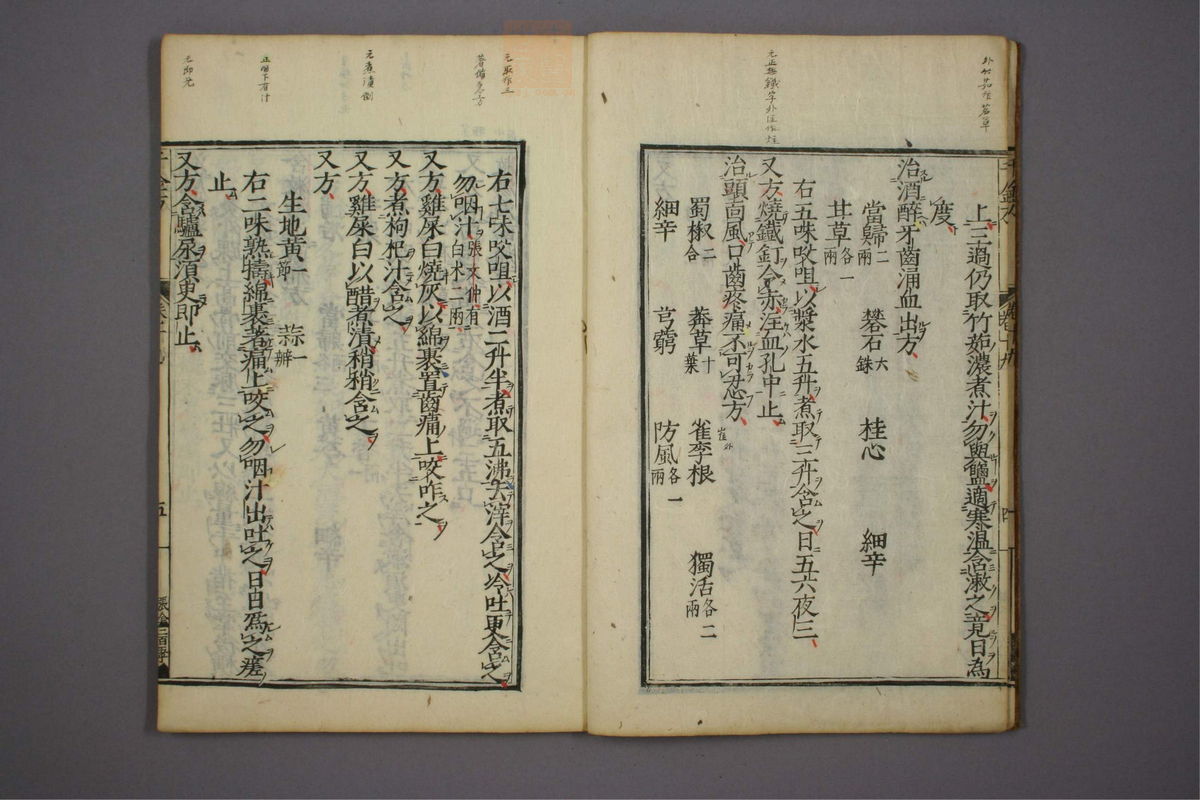 上三過仍取竹茹濃煮汁勿與鹽適寒温含漱之竟日為
度
治酒醉牙齒涌血出方
當歸二兩 礬石六銖 桂心 細辛
甘草各一兩
右五味㕮咀以漿水五升煮取三升含之日五六夜三
又方燒鐵釘令赤注血孔中止
治頭面風口齒疼痛不可忍方
蜀椒二合 莽草十葉 雀李根 獨活各二兩
細辛 芎藭 防風各一兩
右七味㕮咀以酒二升半煮取五沸去滓含之冷吐更含之
勿咽汁張文仲有白朮二兩
又方雞屎白燒灰以綿裹置齒痛上咬咋之
又方煮枸杞汁含之
又方雞屎白以醋煮漬稍稍含之
又方
生地黃一節 蒜一瓣
右二味熟擣綿裹著痛上咬之勿咽汁出吐之日日為之瘥
止
又方含驢尿須臾即止
千金方
五
四